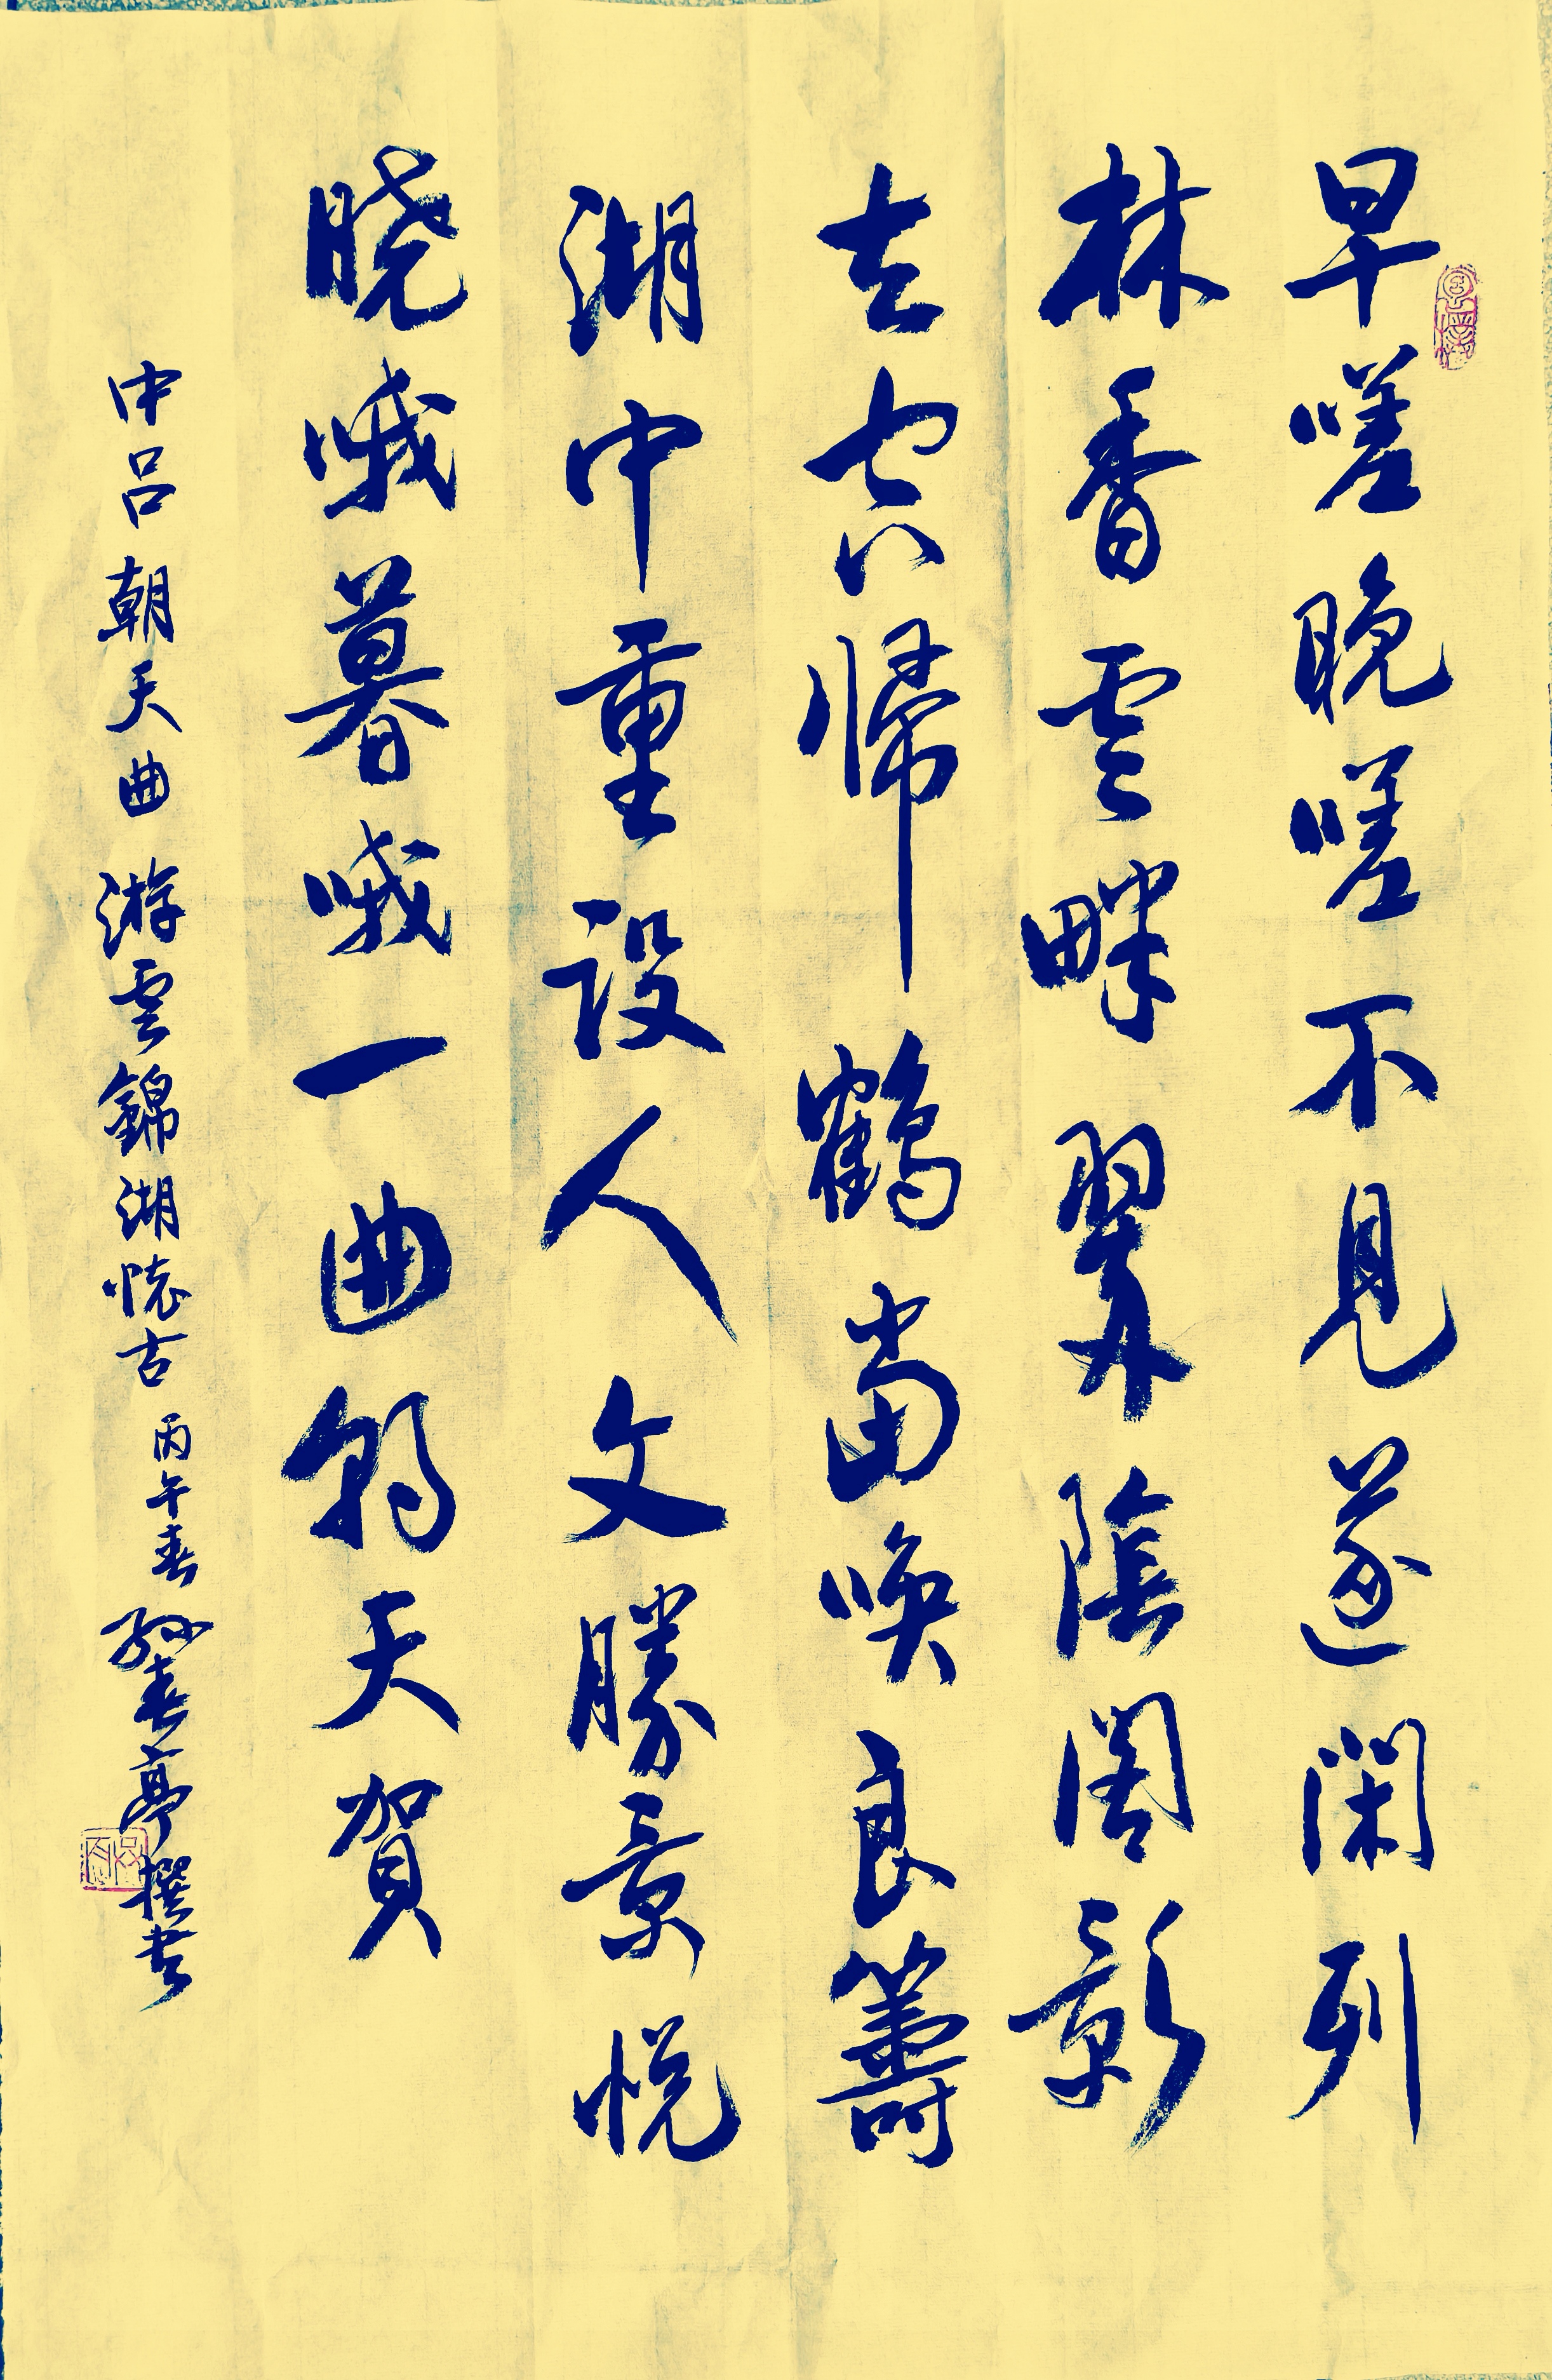 早嗟晚嗟不見遂閑列
林香雲畔翠陰閣影
去空歸鶴當喚良籌
湖中重設人文勝景悦
晓哦暮哦一曲朝天賀
中吕朝天曲 游雲錦湖懷古 丙午春 孫春亭撰書